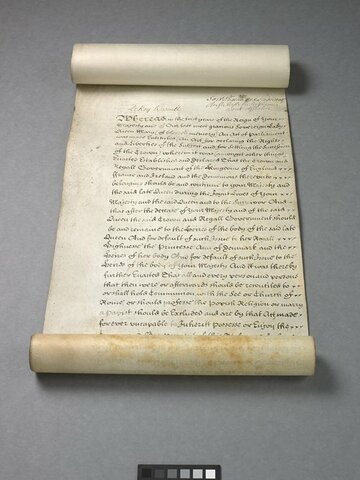 Le Roy le veult
Whereas in the first yeare of the Reign of Your
Majesty and of Our late most gracious Soveraign Lady
Queen Mary (of blessed memory) An Act of Parliament
was made Intituled An Act for declaring the Rights
and Liberties of the Subject and for settling the Succession
of the Crown wherein it was (amongst other things)
Enacted Established and Declared That the Crown and
Regall Government of the Kingdoms of England
ffrance and Ireland and the Dominions thereunto
belonging should be and continue to your Majestie and
the said late Queen during the joynt Lives of Your
Majesty and the said Queen and to the Survivor And
that after the decease of Your Majesty and of the said
Queen the said Crown and Regall Government should
be and remaine to the Heires of the body of the said late
Queen And for default of such Issue to her Royall
Highness the Princess Ann of Denmark and the
Heires of her body And for default of such Issue to the
Heires of the body of Your Majesty And it was thereby
further Enacted That all and every person and persons
that then were or afterwards should be reconciled to
or shall hold Communion with the See or Church of
Rome or should professe the Popish Religion or marry
a Papist should be Excluded and are by that Act made
for ever uncapable to Inheritt Possesse or Enjoy the